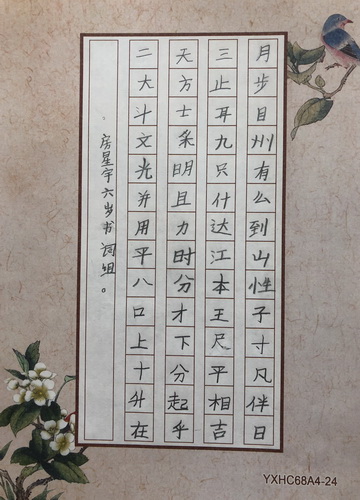 月步目州有么到山性子寸凡伴日
三止耳九只什达江本王尺平相吉
天方士采明且力时分才下分起乎
二大斗文光并用平八口上十升在
房星宇六岁书词组。
YXHC68A4-24